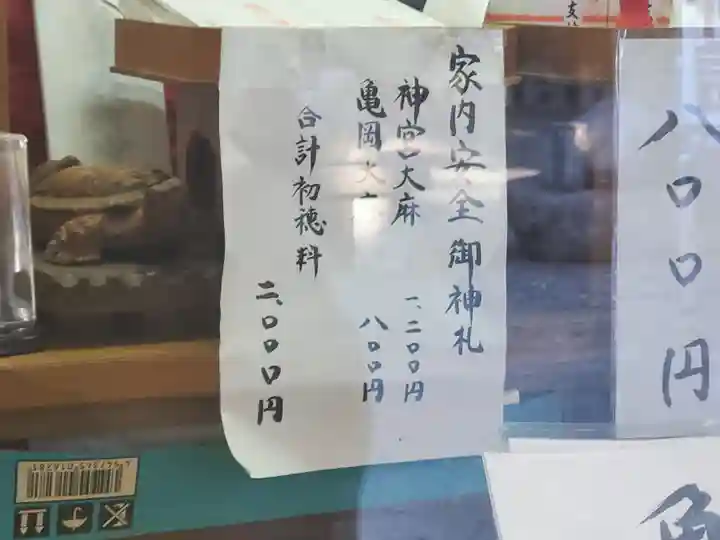 家内安全御神札
神宮大麻 一、二〇〇円
亀岡大 八〇〇円
合計初穂料 二、〇〇〇円
八〇〇円